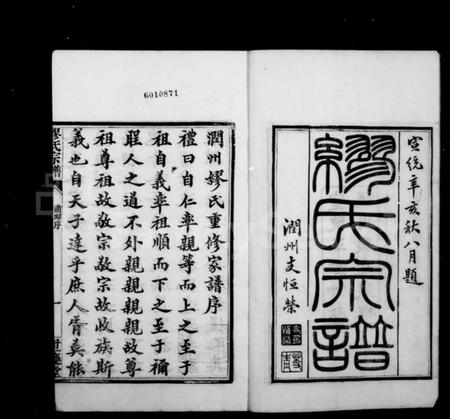 6010871
宣統辛亥秋八月題
繆氏宗譜
潤州支恒榮
潤州繆氏重修家譜序
禮曰自仁率親等而上之至于
祖自義率祖順而下之至于禰
聖人之道不外親親親親故尊
祖尊祖故敬宗敬宗故收族斯
義也自天子達乎庶人胥莫能
繆氏宗譜